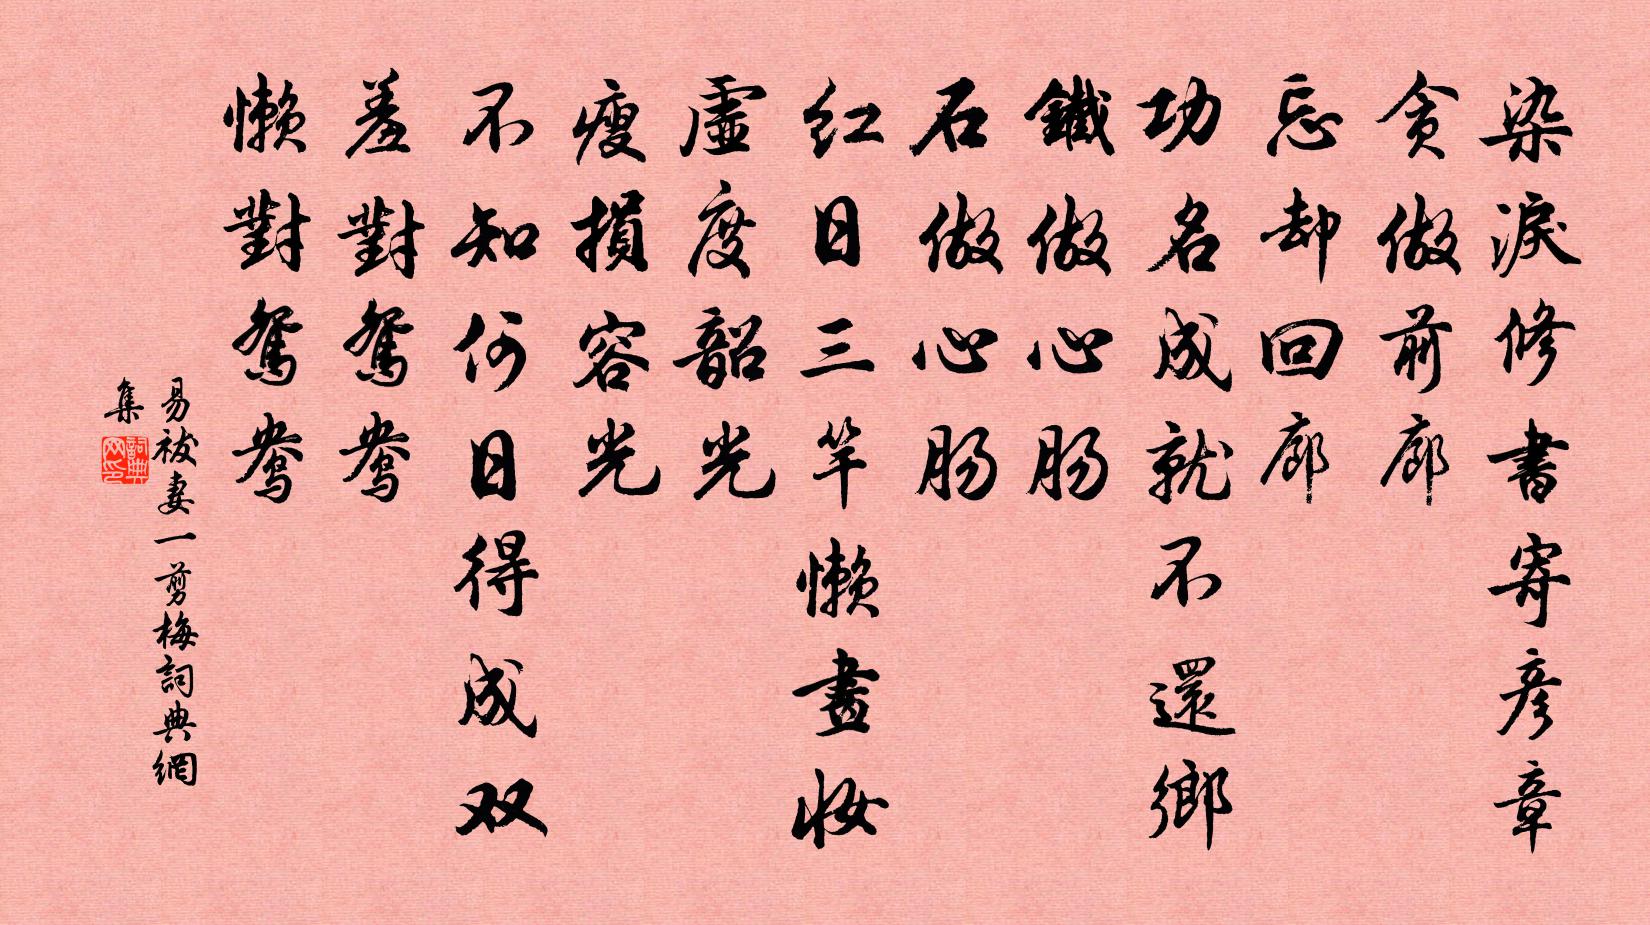 染淚修書寄彦章
貪做前廊
忘却回廊
功名成就不還鄉
鐵做心肠
石做心肠
红日三竿懒畫妝
虛度韶光
瘦損容光
不知何日得成双
羞對鴛鴦
懒對鴛鴦
易祓妻一剪梅詞典網
集
詞典网印